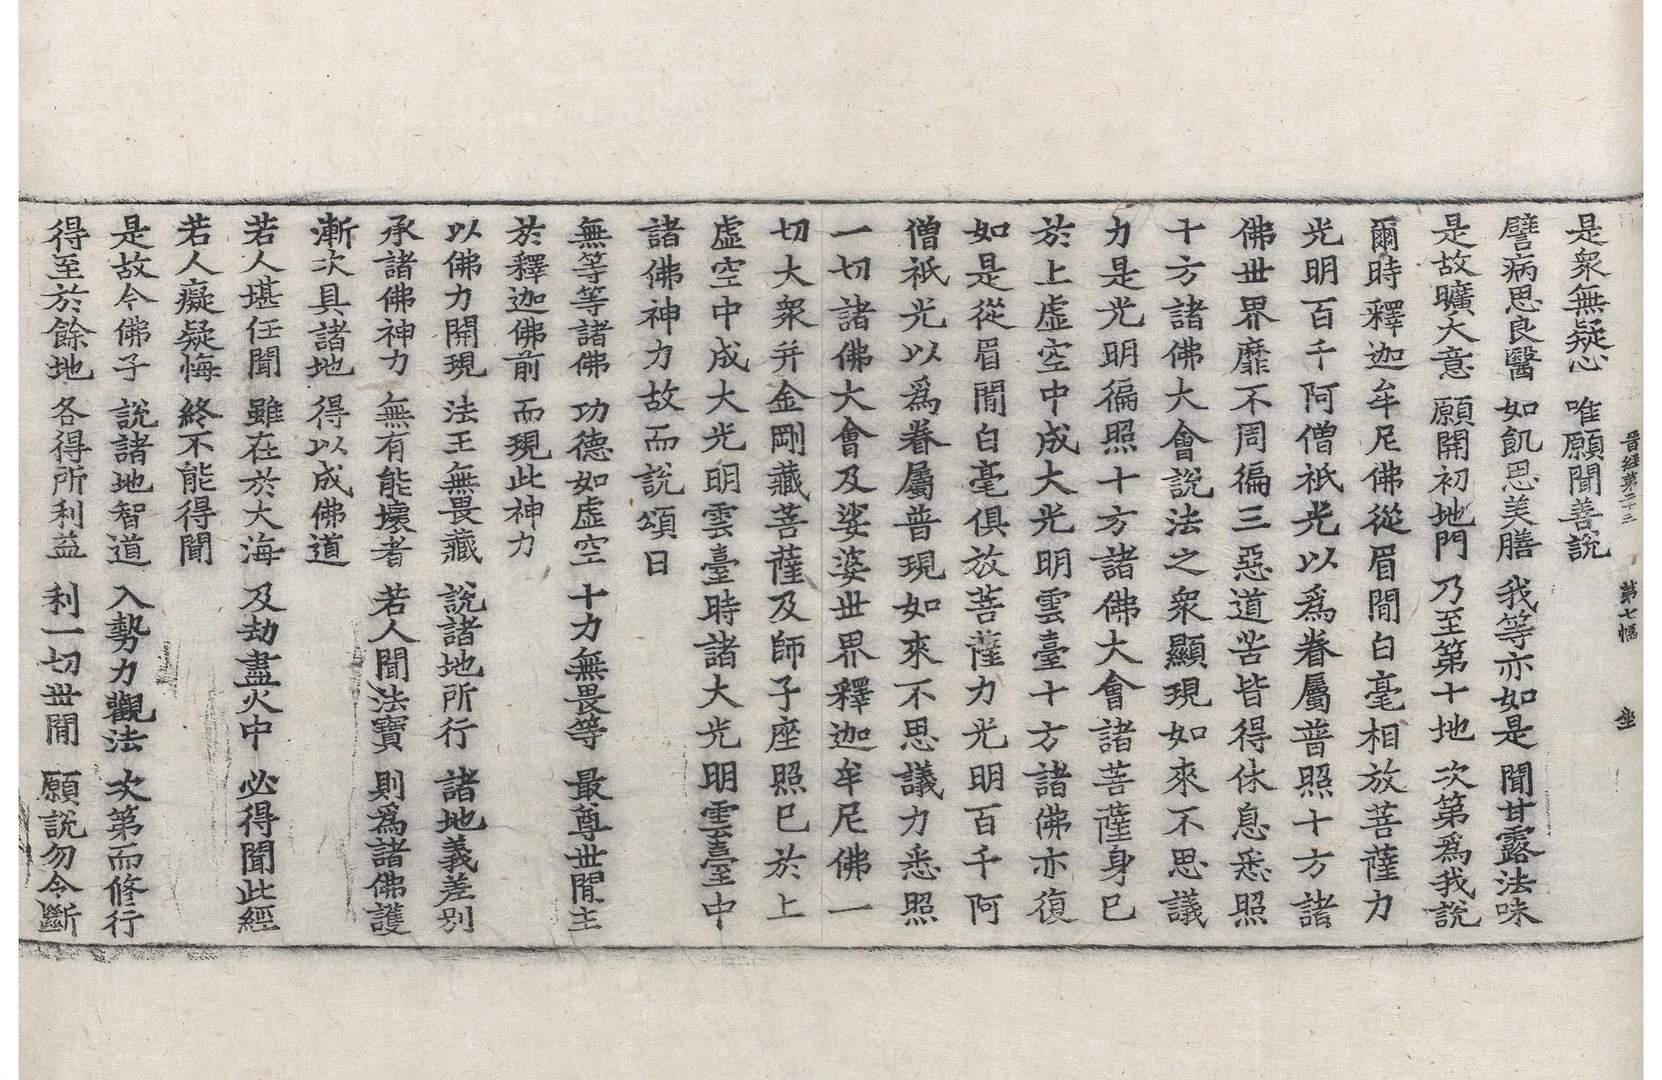 晉經第二十三　第七幅　坐
是衆無疑心　唯願聞善說
譬病思良醫　如飢思美膳　我等亦如是　聞甘露法味
是故曠大意　願開初地門　乃至第十地　次第爲我說
爾時釋迦牟尼佛從眉閒白毫相放菩薩力
光明百千阿僧祇光以爲眷屬普照十方諸
佛世界靡不周徧三惡道苦皆得休息悉照
十方諸佛大會說法之衆顯現如來不思議
力是光明徧照十方諸佛大會諸菩薩身已
於上虛空中成大光明雲臺十方諸佛亦復
如是從眉閒白毫俱放菩薩力光明百千阿
僧祇光以爲眷屬普現如來不思議力悉照
一切諸佛大會及娑婆世界釋迦牟尼佛一
切大衆并金剛藏菩薩及師子座照已於上
虛空中成大光明雲臺時諸大光明雲臺中
諸佛神力故而說頌曰
無等等諸佛　功德如虛空　十力無畏等　最尊世閒主
於釋迦佛前　而現此神力
以佛力開現　法王無畏藏　說諸地所行　諸地義差別
承諸佛神力　無有能壞者　若人聞法寶　則爲諸佛護
漸次具諸地　得以成佛道
若人堪任聞　雖在於大海　及劫盡火中　必得聞此經
若人癡疑悔　終不能得聞
是故今佛子　說諸地智道　入勢力觀法　次第而修行
得至於餘地　各得所利益　利一切世閒　願說勿令斷